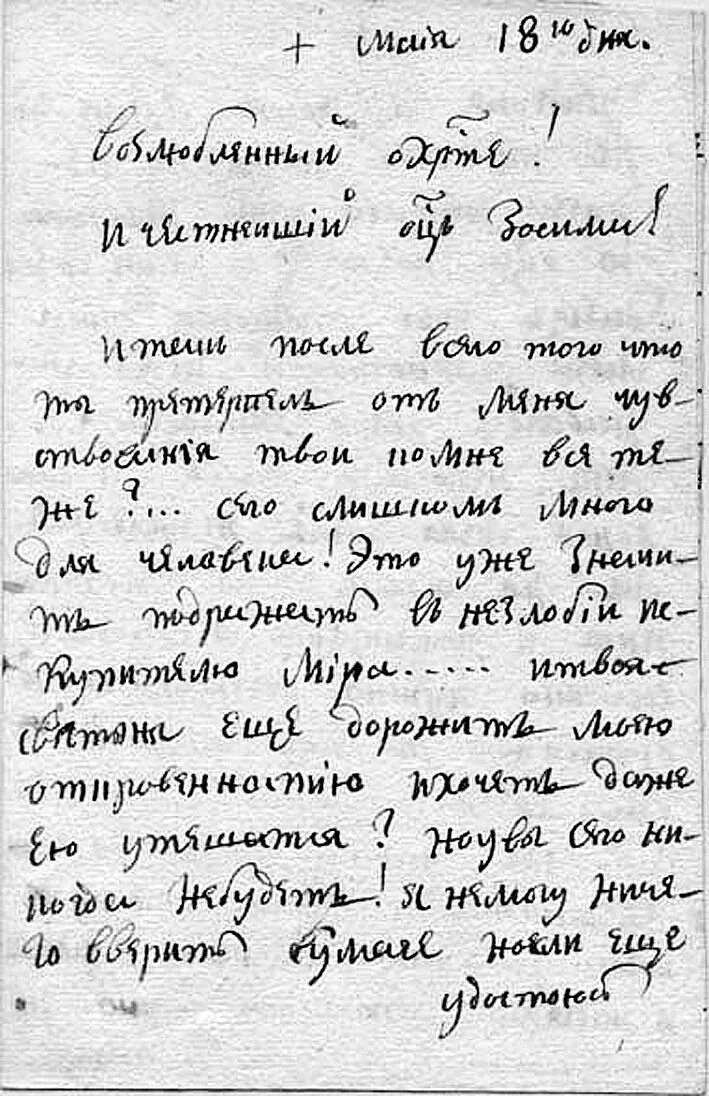 + Маія 18го дня.
Возлюбленный о Хрт҃ѣ!
и честнейшій оц҃ъ Зосима!
Итакъ после всего того что
ты претерпелъ отъ меня чув-
ствованія твои ко мне все те-
же?... сего слишкомъ много
для человека! Это уже Значи-
тъ подражать въ незлобіи ис-
купителю Міра..... и твоя
святыня еще дорожитъ моею
откровенностію и хочетъ даже
Ею утешатся? но увы сего ни-
когда небудетъ! я немогу ниче-
го вверить бумаге но если еще
удостоюсь